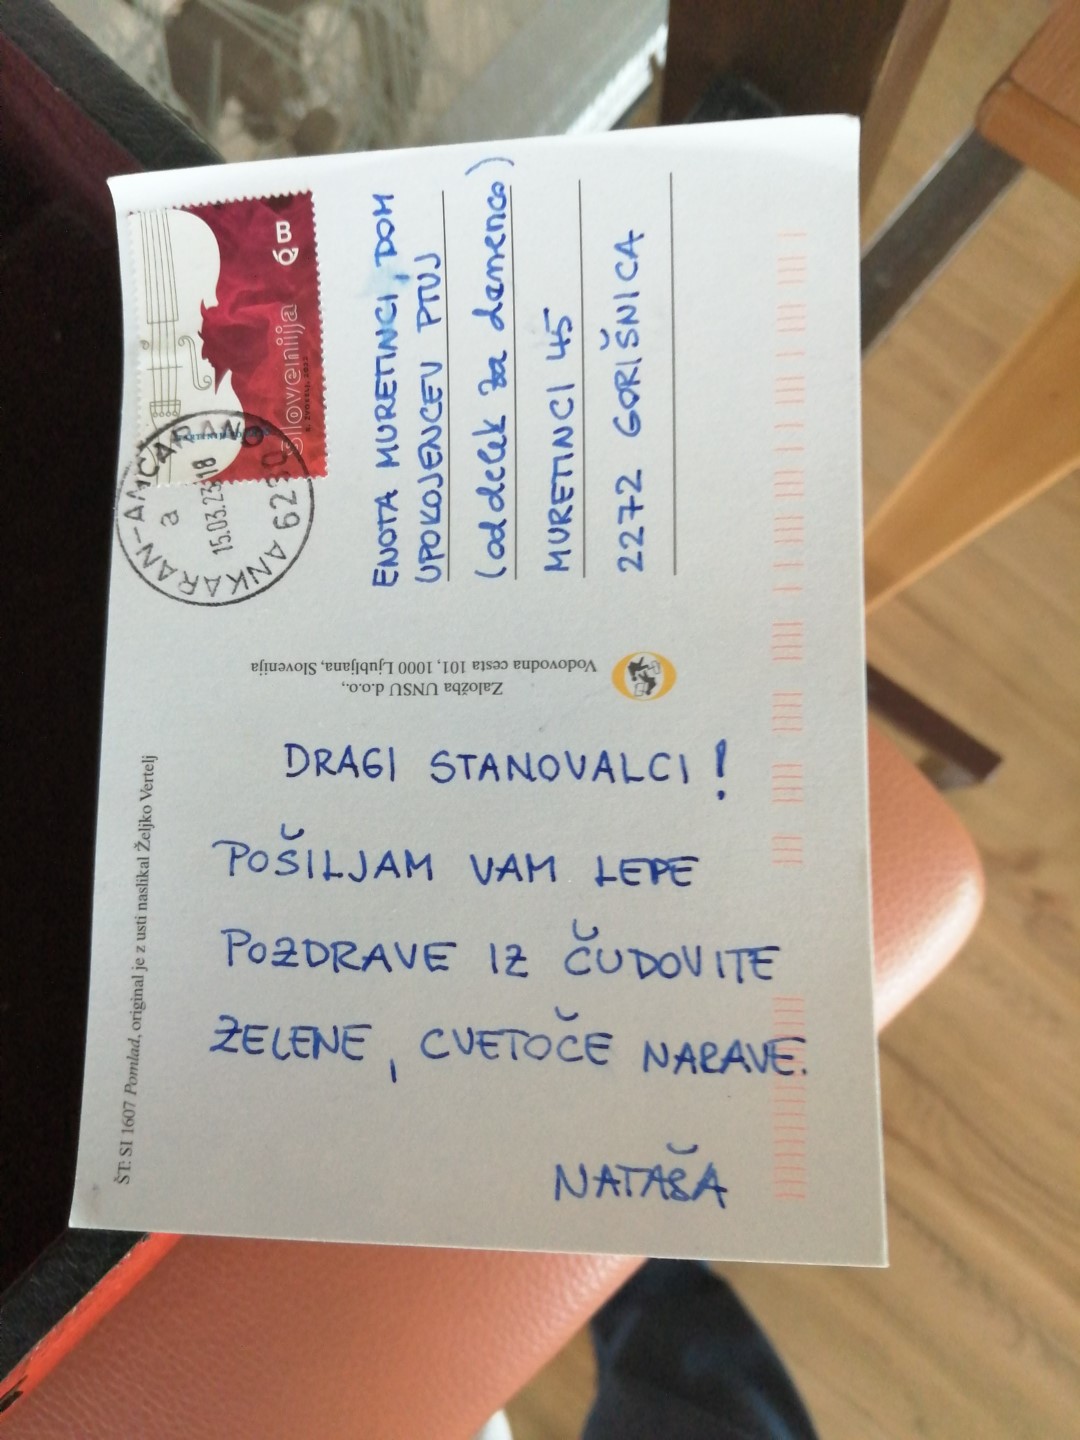 DRAGI STANOVALCI!
POŠILJAM VAM LEPE
POZDRAVE IZ ČUDOVITE
ZELENE, CVETOČE NARAVE.
NATAŠA
ŠT: SI 1607 Pomlad, original je z usti naslikal Željko Vertelj
Založba UNSU d.o.o.,
Vodovodna cesta 101, 1000 Ljubljana, Slovenija
B
Slovenija
ANKARAN-ANCARANO
a
15.03.23 18
6280 ANKARAN
ENOTA MURETINCI, DOM
UPOKOJENCEV PTUJ
(oddelek za demenco)
MURETINCI 45
2272 GORIŠNICA